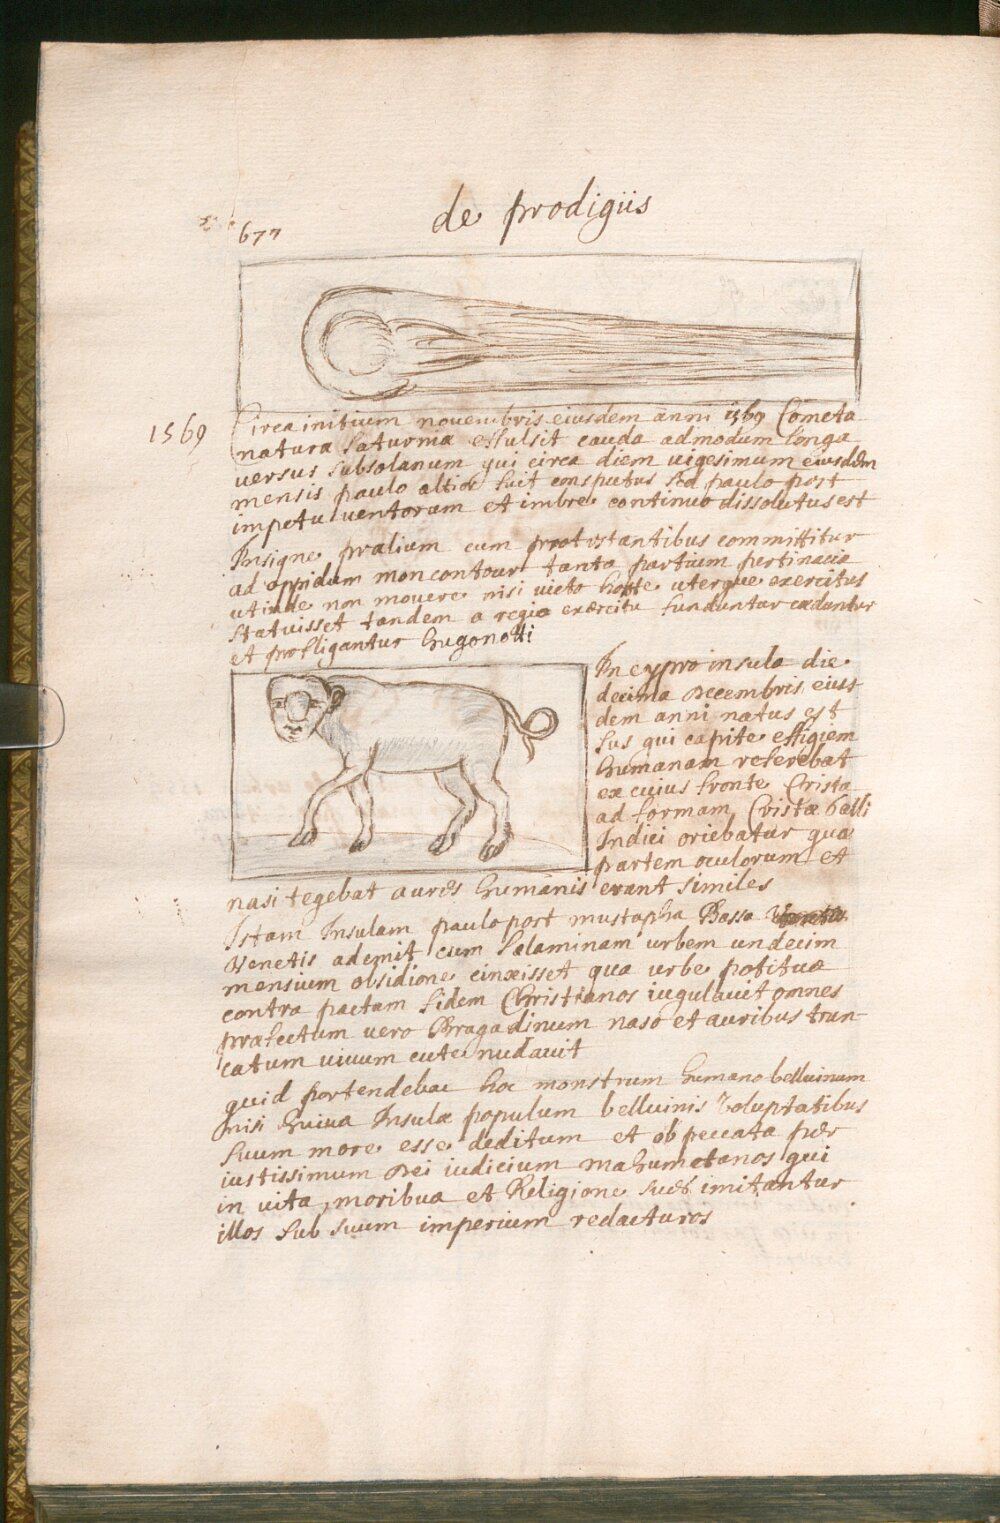 de prodigiis
677
1569
Circa initium nouembris eiusdem anni 1569 Cometa
natura Saturnia effulsit cauda admodum longa
versus subsolanum qui circa diem uigesimum eiusdem
mensis paulo altior fuit conspectus sed paulo post
impetu uentorum et imbre continuo dissolutus est
Insigne prælium cum protestantibus committitur
ad oppidum moncontour tanta partium pertinacia
ut inde non mouere nisi uicto hoste uterque exercitus
statuisset tandem a regio exercitu funduntur cæduntur
et profligantur hugonotti
In cypro insula die
decima Decembris eius
dem anni natus est
sus qui capite effigiem
humanam referebat
ex cuius fronte Crista
ad formam Cristæ Galli
Indici oriebatur quæ
partem oculorum et
nasi tegebat aures humanis erant similes
Istam Insulam paulo post mustapha Bassa
Venetis ademit cum Salaminam urbem undecim
mensium obsidione cinxisset qua urbe potitus
contra pactam fidem Christianos iugulauit omnes
præfectum uero Bragadinum naso et auribus trun-
catum uiuum cute nudauit
quid portendebat hoc monstrum humano belluinum
nisi huius Insulæ populum belluinis Voluptatibus
suum more esse deditum et ob peccata per
iustissimum Dei iudicium mahumetanos qui
in uita, moribus et Religione sues imitantur
illos sub suum imperium redacturos